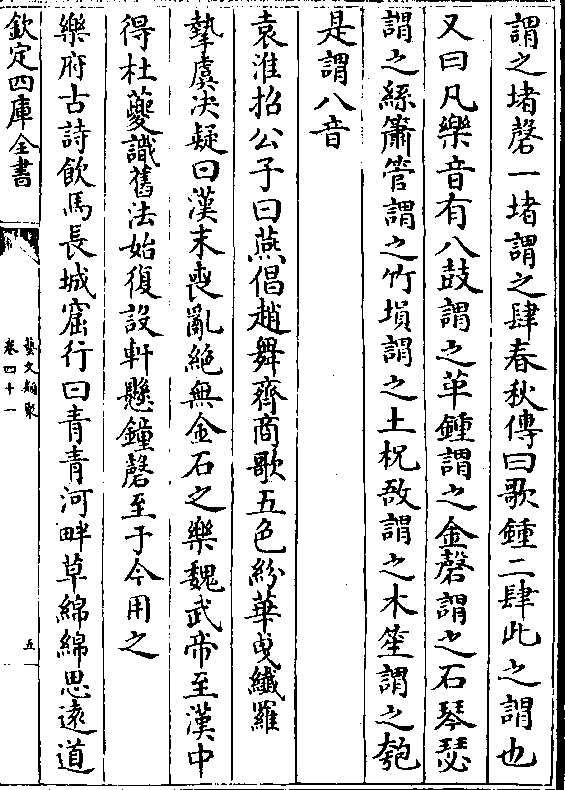 謂之堵磬一堵謂之肆春秋傳曰歌鍾二肆此之謂也
又曰凡樂音有八鼓謂之革鍾謂之金磬謂之石琴瑟
謂之絲簫管謂之竹塤謂之土柷敔謂之木笙謂之匏
是謂八音
袁淮招公子曰燕倡趙舞齊商歌五色紛華曳纖羅
摯虞決疑曰漢末喪亂絕無金石之樂魏武帝至漢中
得杜夔識舊法始復設軒懸鐘磬至于今用之
樂府古詩飲馬長城窟行曰青青河畔草綿綿思遠道
欽定四庫全書
藝文類聚
卷四十一
五